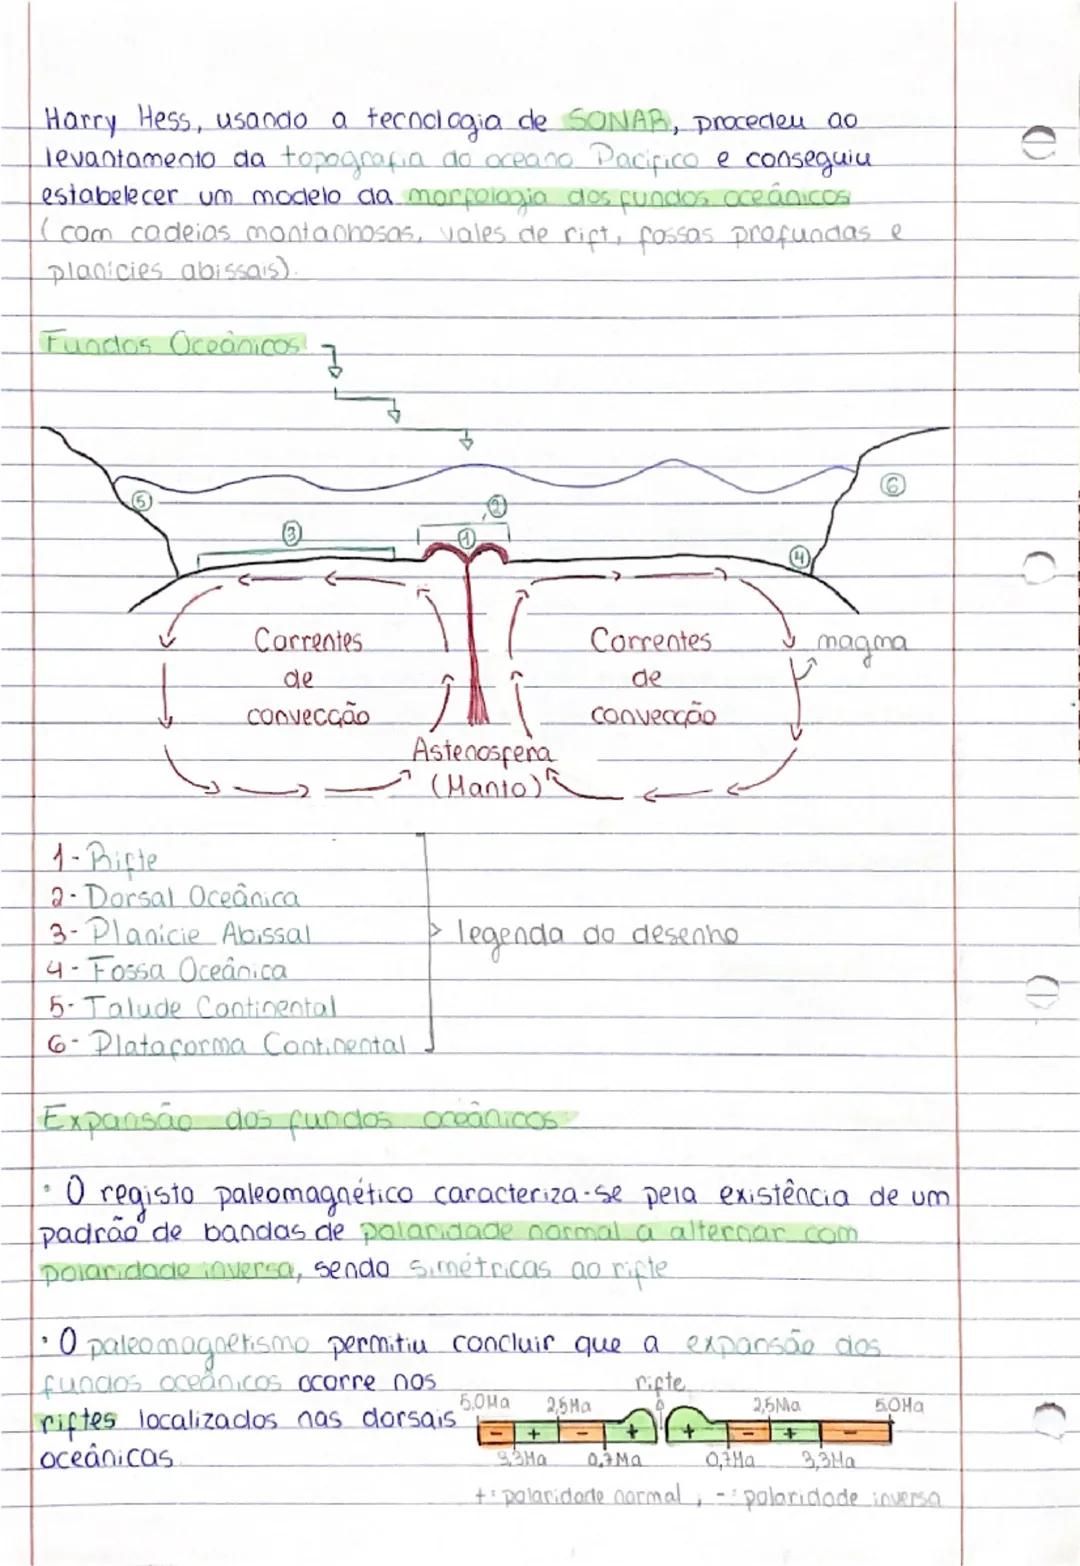 Harry Hess, usando a tecnologia de SONAR, procedeu ao
levantamento da topografia do oceano Pacífico e conseguiu
estabelecer um modelo da morfologia dos fundos oceânicos
(com cadeias montanhosas, vales de rift, fossas profundas e
planícies abissais).
Fundos Oceânicos:
5
3
2
1
6
4
Correntes
de
convecção
Correntes
de
convecção
magma
Astenosfera
(Manto)
1- Rifte
2- Dorsal Oceânica
3- Planície Abissal
4- Fossa Oceânica
5- Talude Continental
6- Plataforma Continental
legenda do desenho
Expansão dos fundos oceânicos:
• O registo paleomagnético caracteriza-se pela existência de um
padrão de bandas de polaridade normal a alternar com
polaridade inversa, sendo simétricas ao rifte
• O paleomagnetismo permitiu concluir que a expansão dos
fundos oceânicos ocorre nos
riftes localizados nas dorsais
oceânicas.
rifte
5,0Ma 2,5Ma 2,5Ma 5,0Ma
- + - + + - + -
3,3Ma 0,7Ma 0,7Ma 3,3Ma
+: polaridade normal ; -: polaridade inversa